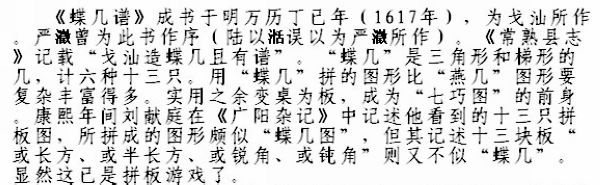 《蝶几谱》成书于明万历丁已年(1617年)，为戈汕所作
。严澂曾为此书作序(陆以湉误以为严澂所作)。《常熟县志
》记载“戈汕造蝶几且有谱”。“蝶几”是三角形和梯形的
几，计六种十三只。用“蝶几”拼的图形比“燕几”图形要
复杂丰富得多。实用之余变桌为板，成为“七巧图”的前身
。康熙年间刘献庭在《广阳杂记》中记述他看到的十三只拼
板图，所拼成的图形颇似“蝶几图”，但其记述十三块板“
或长方、或半长方、或锐角、或钝角”则又不似“蝶几”。
显然这已是拼板游戏了。